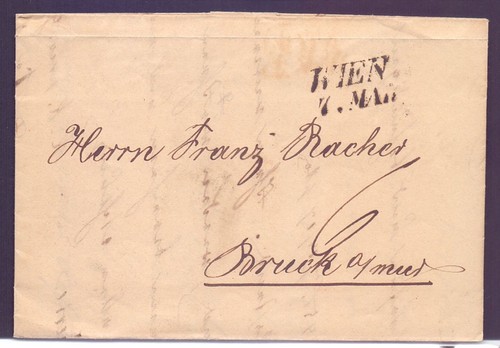 WIEN
7. MAR
Herrn Franz Racher
6
Bruck a/mur